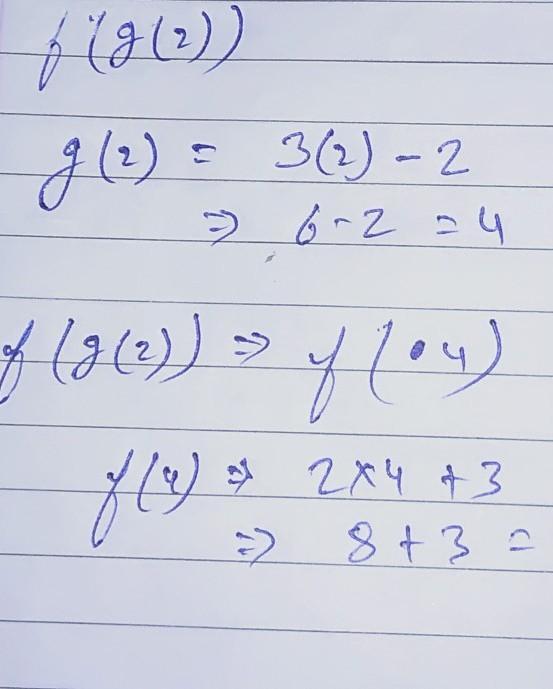 f(g(2))
g(2) = 3(2) - 2
⇒ 6 - 2 = 4
f(g(2)) ⇒ f(4)
f(4) ⇒ 2×4 + 3
⇒ 8 + 3 =